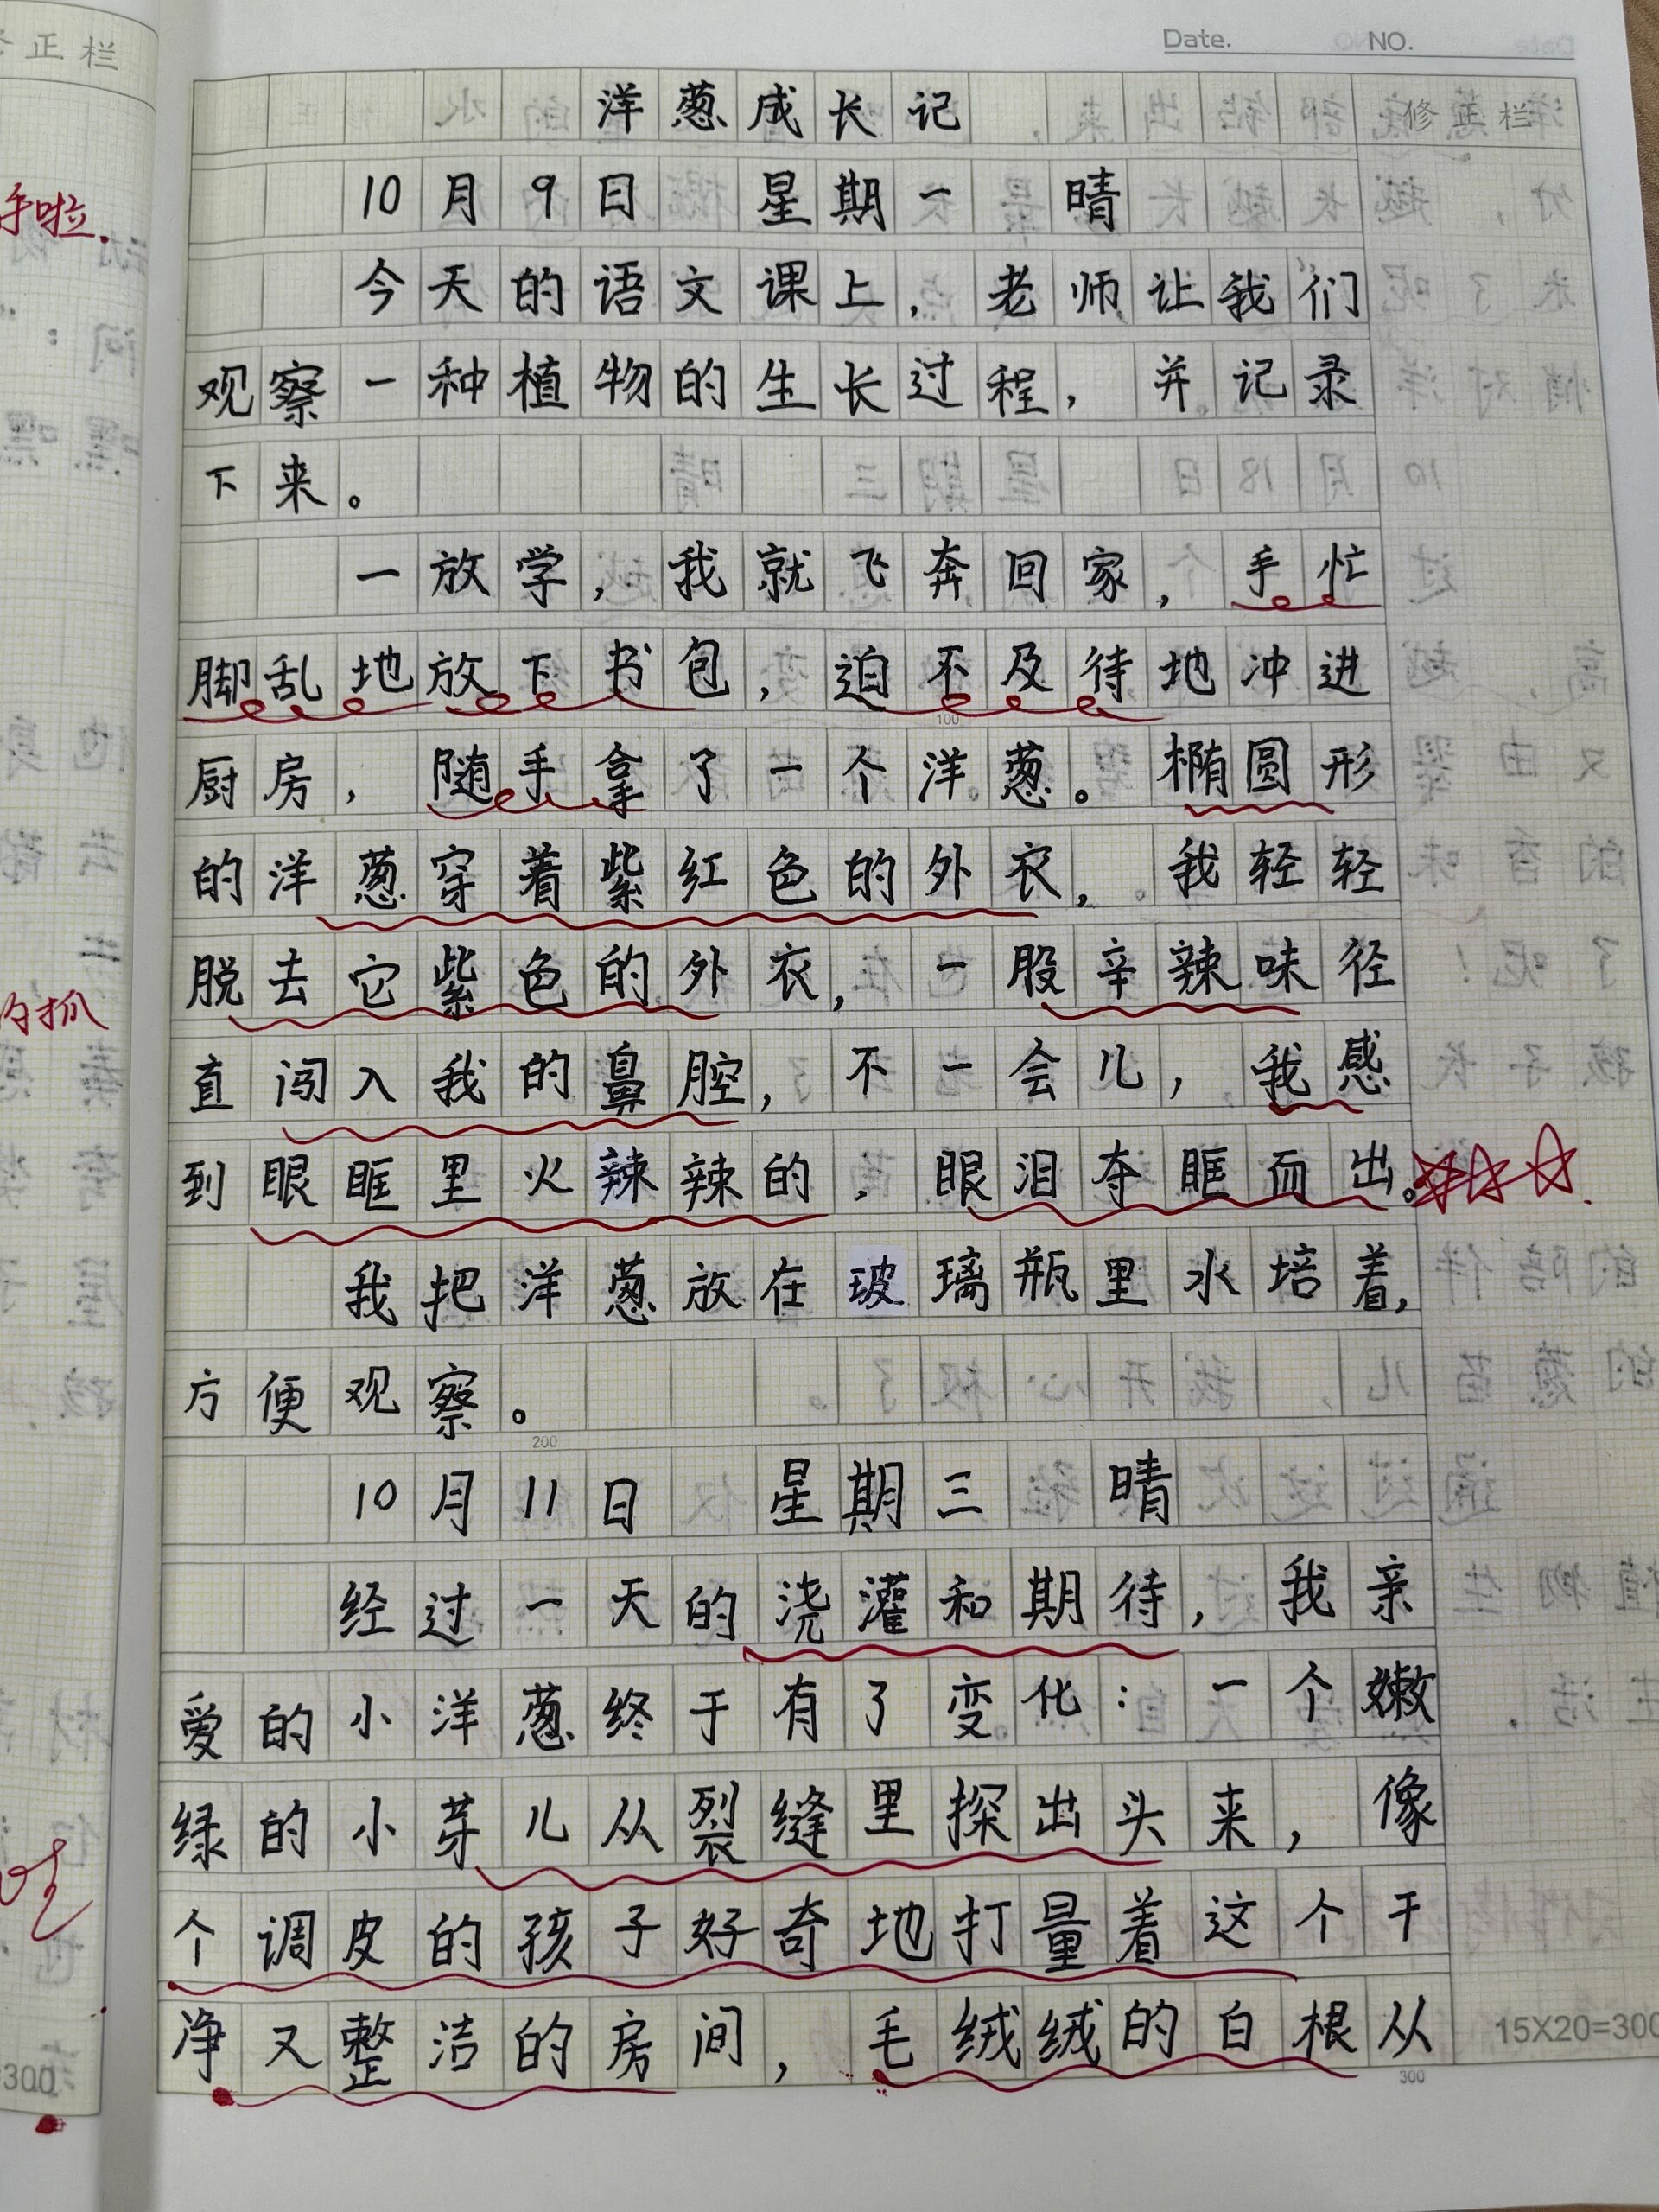 Date. NO.
修正栏
洋葱成长记
修正栏
10月9日 星期一 晴
今天的语文课上，老师让我们
观察一种植物的生长过程，并记录
下来。
一放学，我就飞奔回家，手忙
脚乱地放下书包，迫不及待地冲进
100
厨房，随手拿了一个洋葱。椭圆形
的洋葱穿着紫红色的外衣，我轻轻
脱去它紫色的外衣，一股辛辣味径
直闯入我的鼻腔，不一会儿，我感
到眼眶里火辣辣的，眼泪夺眶而出。
我把洋葱放在玻璃瓶里水培着，
方便观察。
200
10月11日 星期三 晴
经过一天的浇灌和期待，我亲
爱的小洋葱终于有了变化：一个嫩
绿的小芽儿从裂缝里探出头来，像
个调皮的孩子好奇地打量着这个干
净又整洁的房间，毛绒绒的白根从
15X20=300
300